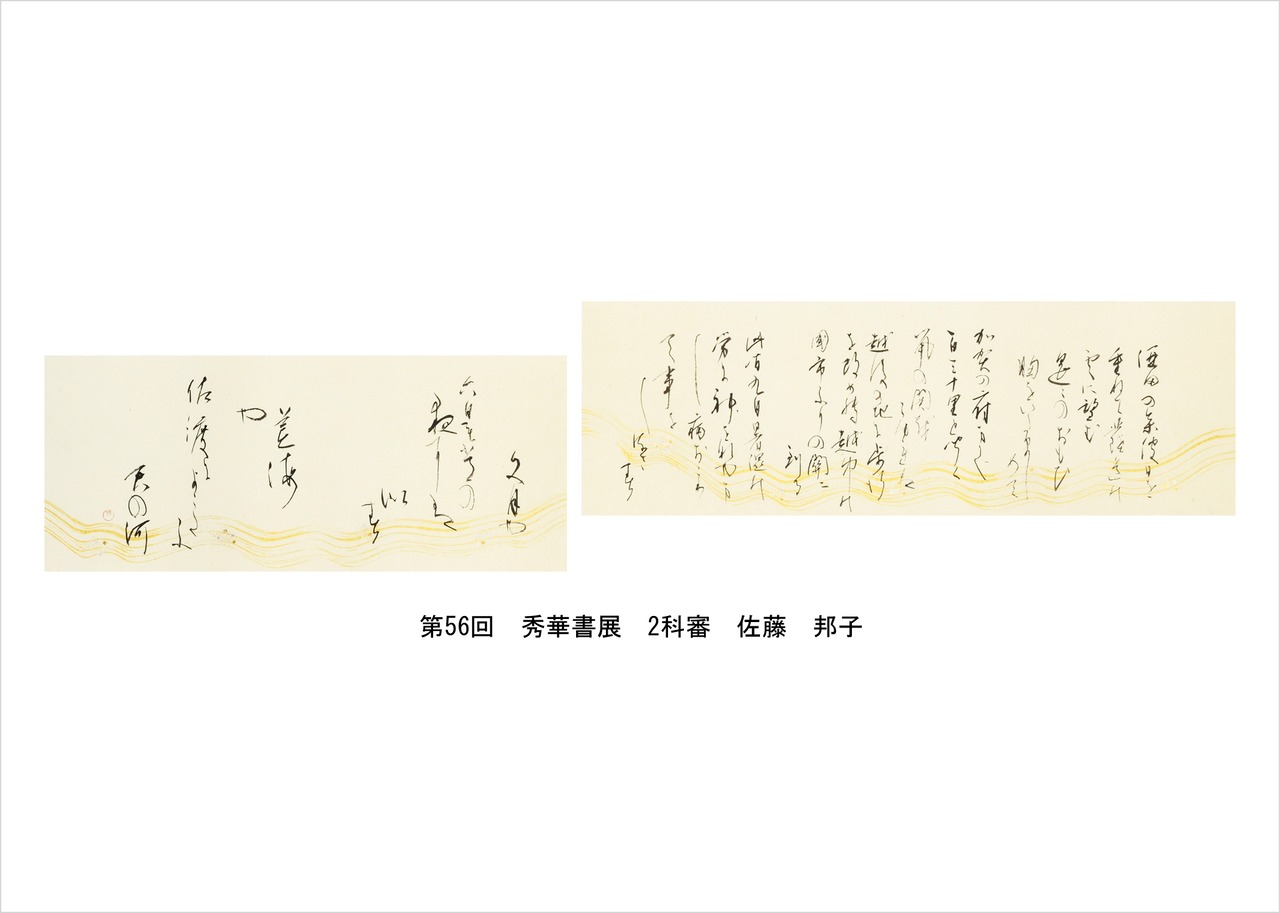 酒田の余波日を
重ねて北陸道の
雲に望む
遥々のおもひ
胸をいたましめて
加賀の府まて
百三十里と聞く
鼠の関を
こゆれは
越後の地に歩行
を改めて越中の
国市ふりの関に
到る
此間九日暑湿の
労に神をなやま
し病おこり
て事を
しるさ
す
文月や
六日も常の
夜には
似
す
荒海
や
佐渡に
よこたふ
天の河
第56回　秀華書展　2科審　佐藤　邦子